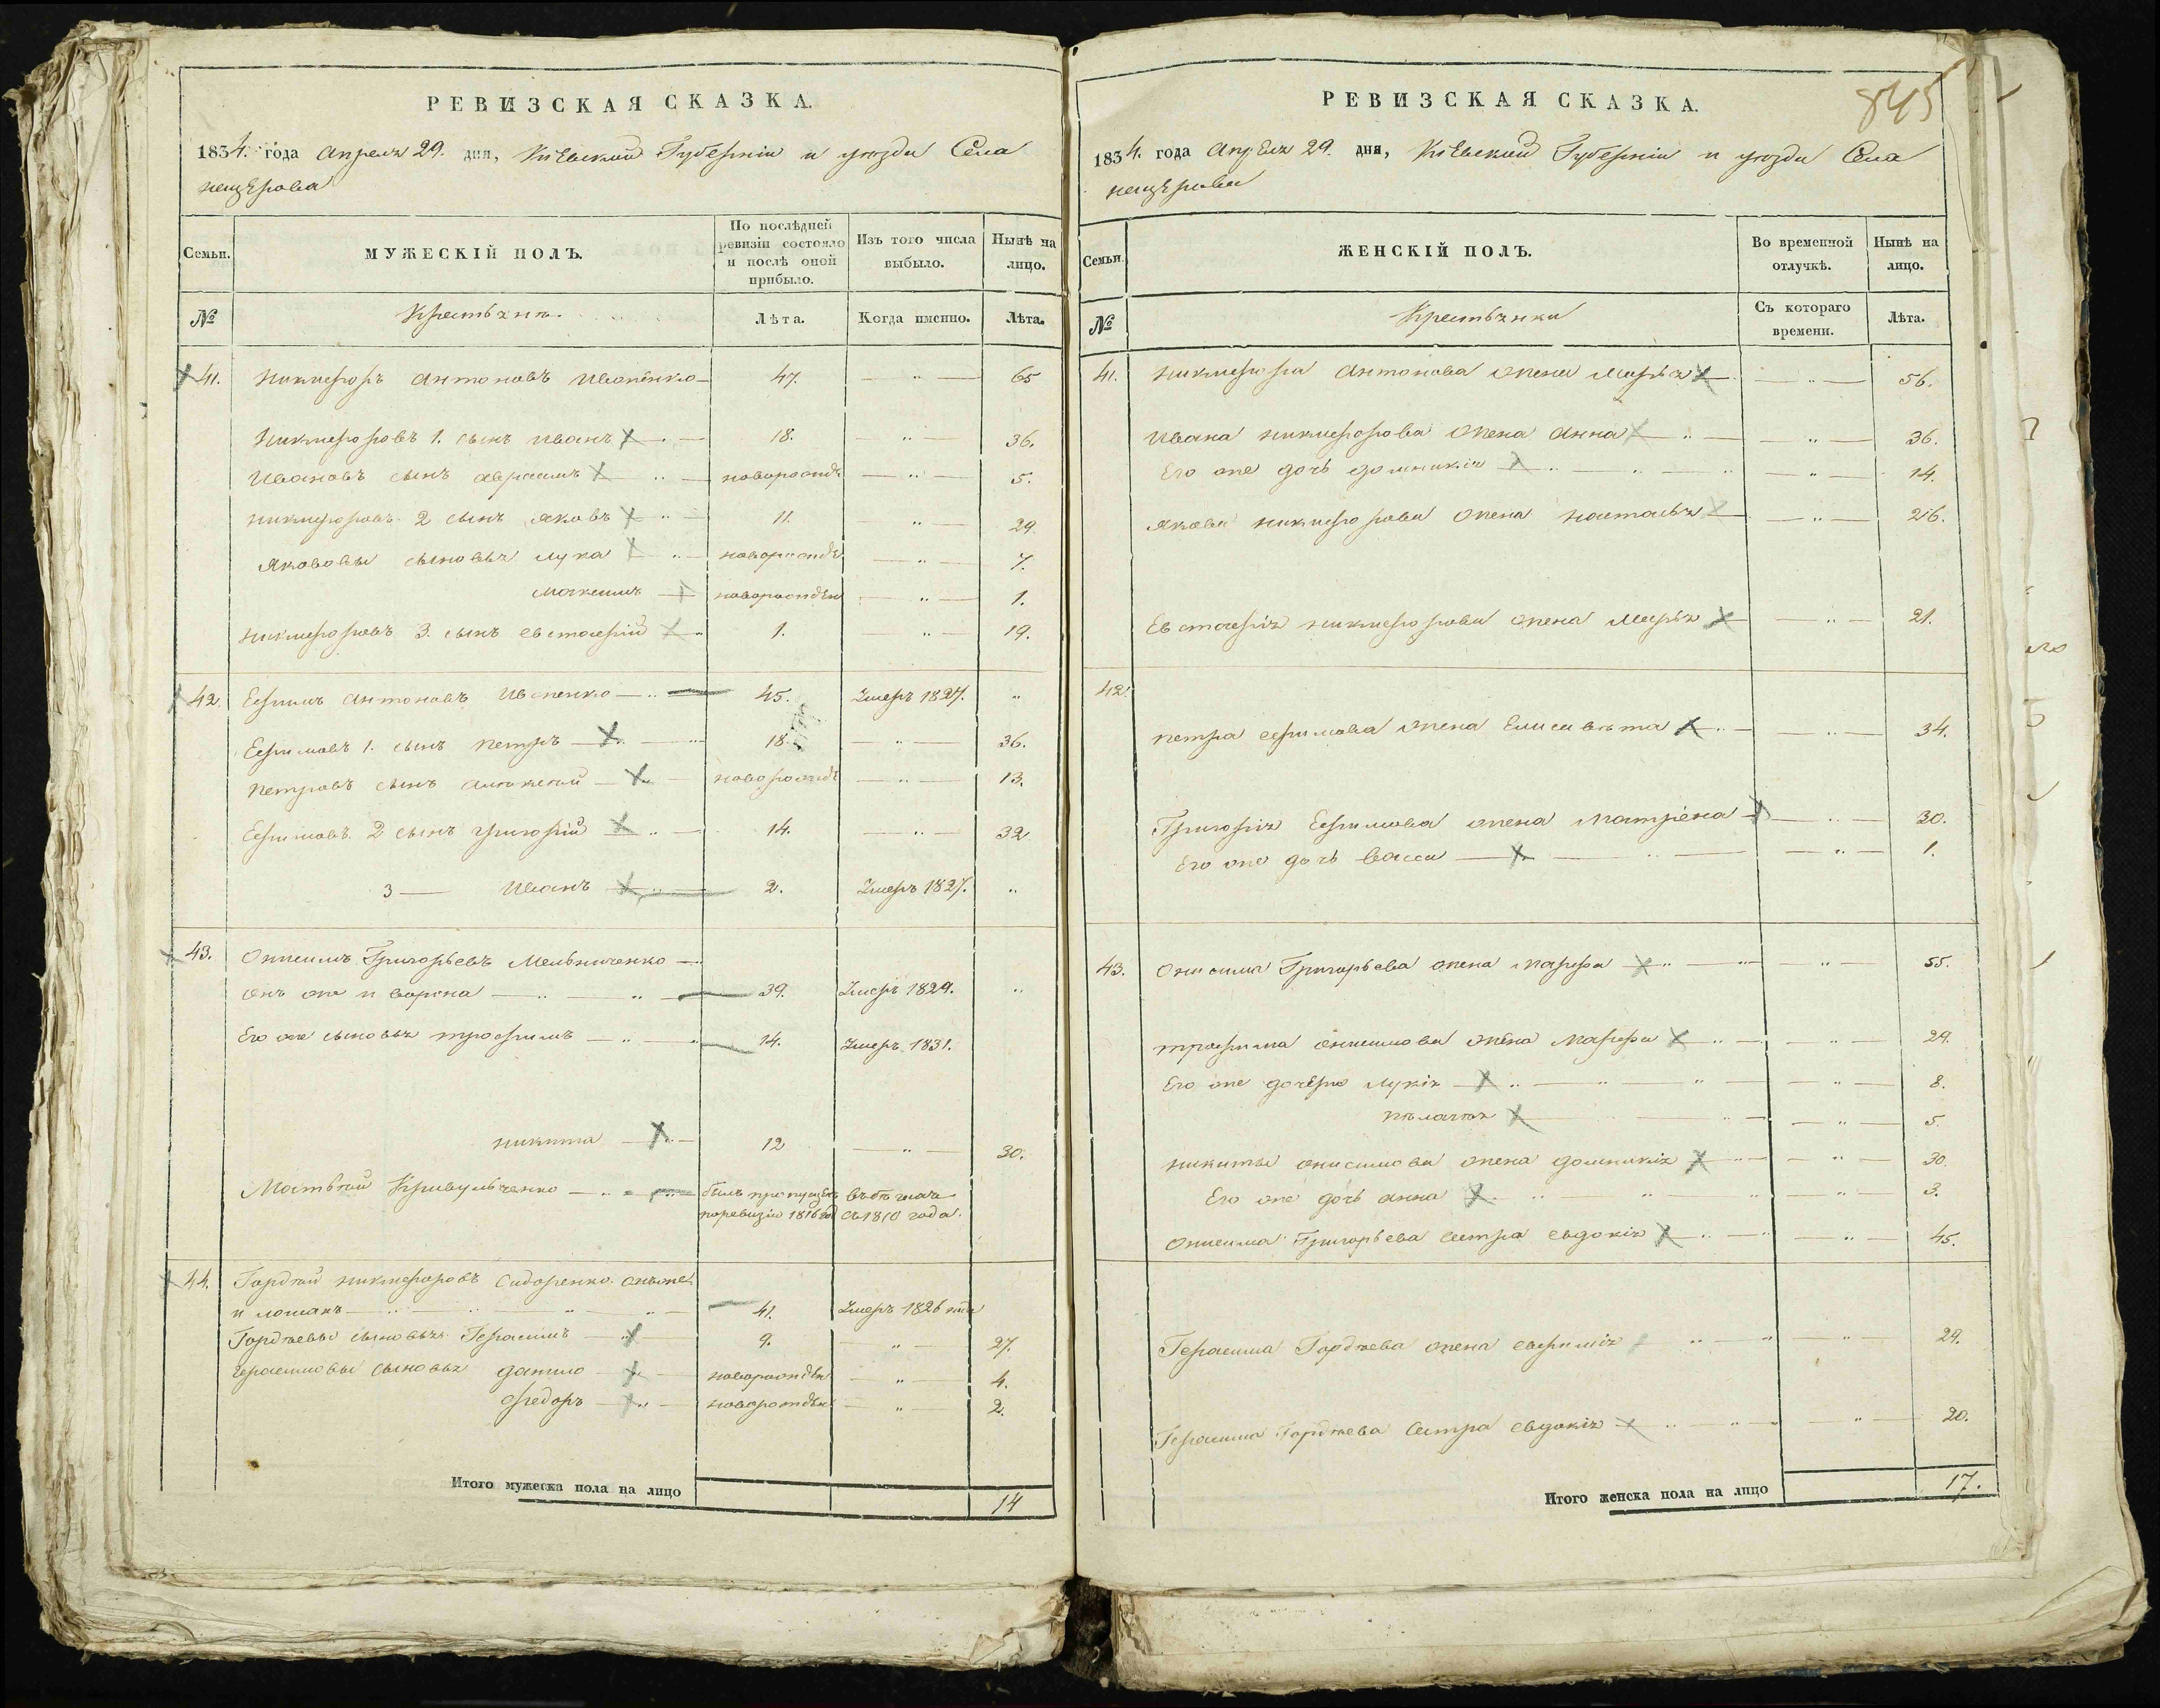 РЕВИЗСКАЯ СКАЗКА.
1834. года Апреля 29. дня, Кіевской Губерніи и уезда Села
пещерова
Семьи. МУЖЕСКІЙ ПОЛЪ. По послѣдней ревизіи состояло и послѣ оной прибыло. Изъ того числа выбыло. Нынѣ на лицо.
№ Крестьяне. Лѣта. Когда именно. Лѣта.
41. Никифоръ Антоновъ Ивапенко 47. — „ — 65
Никифоровъ 1. сынъ Иванъ — 18. „ — 36.
Ивановъ сынъ авраамъ — „ — новорожд — „ — 5.
Никифоровъ 2 сынъ яковъ — „ — 11. „ — 29
Якововы сыновья лука — „ — новорожде — „ — 7.
Максимъ — новорожден — „ — 1.
Никифоровъ 3. сынъ евстафій — „ 1. „ — 19.
42. Ефимъ Антоновъ — „ — 45. Умеръ 1827. „
Ефимовъ 1. сынъ петръ — „ 18. — „ — 36.
петровъ сынъ алексей — новорожде — „ — 13.
Ефимовъ 2 сынъ григорій — „ — 14. — „ — 32
3 — Иванъ — „ — 2. Умеръ 1827. „
43. Онисимъ Григорьевъ Мельниченко —
онъ же и ворона — „ — „ — 39. Умеръ 1829. „
Его же сыновья трофимъ — „ — „ 14. Умеръ 1831.
никита — „ — 12 — „ — 30.
Матвей Кривульченко — „ — былъ пропущенъ въбегахъ
поревизіи 1816 год съ1810 года.
44. Гордей никифоровъ Сидоренко онъже
и — „ — „ — „ — „ — 41. Умеръ 1826
Гордеевы сыновья Герасимъ — „ 9. „ — 27.
Герасимовы сыновья данило — новорожден — „ — 4.
федоръ — „ — новорожден — „ — 2.
Итого мужеска пола на лицо 14
РЕВИЗСКАЯ СКАЗКА. 845
1834. года Апреля 29. дня, Кіевской Губерніи и уезда Села
пещерова
Семьи. ЖЕНСКІЙ ПОЛЪ. Во временной отлучкѣ. Нынѣ на лицо.
№ Крестьянки Съ котораго времени. Лѣта.
41. Никифора Антонова жена Марья — — „ — 56.
Ивана никифорова жена Анна — „ — „ — 36.
Его же дочь домникія — „ — „ — „ — 14.
Якова никифорова жена настасья — — „ — 26.
Евстафія никифорова жена Марья — — „ — 21.
42.
петра ефимова жена Елисавета — „ — — „ — 34.
Григорія Ефимова жена матрена — — „ — 30.
Его же дочь васса — „ — — „ — 1.
43. Онисима Григорьева жена марфа — „ — „ — „ — 55.
трофима онисимова жена марфа — „ — — „ — 29.
Его же дочерью лукія — „ — „ — „ — — „ — 8.
пелагея — „ — — „ — 5.
никиты онисимова жена домникія — „ — — „ — 30.
Его же дочь анна — „ — „ — „ — „ — 3.
Онисима Григорьева сестра евдокія — „ — — „ — 45.
Герасима Гордеева жена ефимія — „ — „ — „ — 29.
Герасима Гордеева сестра евдокія — „ — „ — „ — 20.
Итого женска пола на лицо 17.